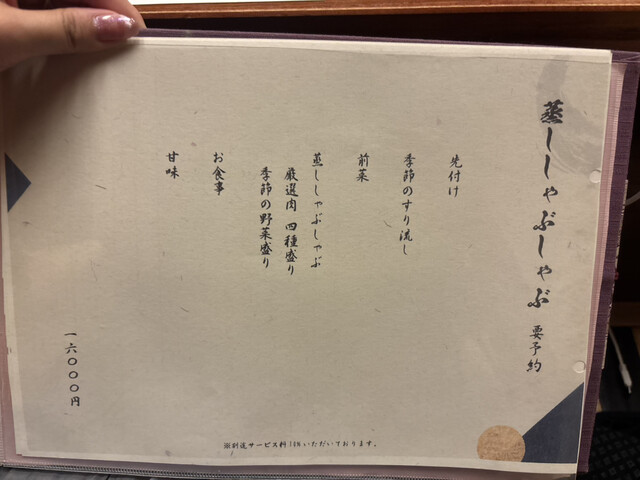 蒸ししゃぶしゃぶ 要予約
先付け
季節のすり流し
前菜
蒸ししゃぶしゃぶ
厳選肉 四種盛り
季節の野菜盛り
お食事
甘味
一六〇〇〇円
※別途サービス料10%いただいております。